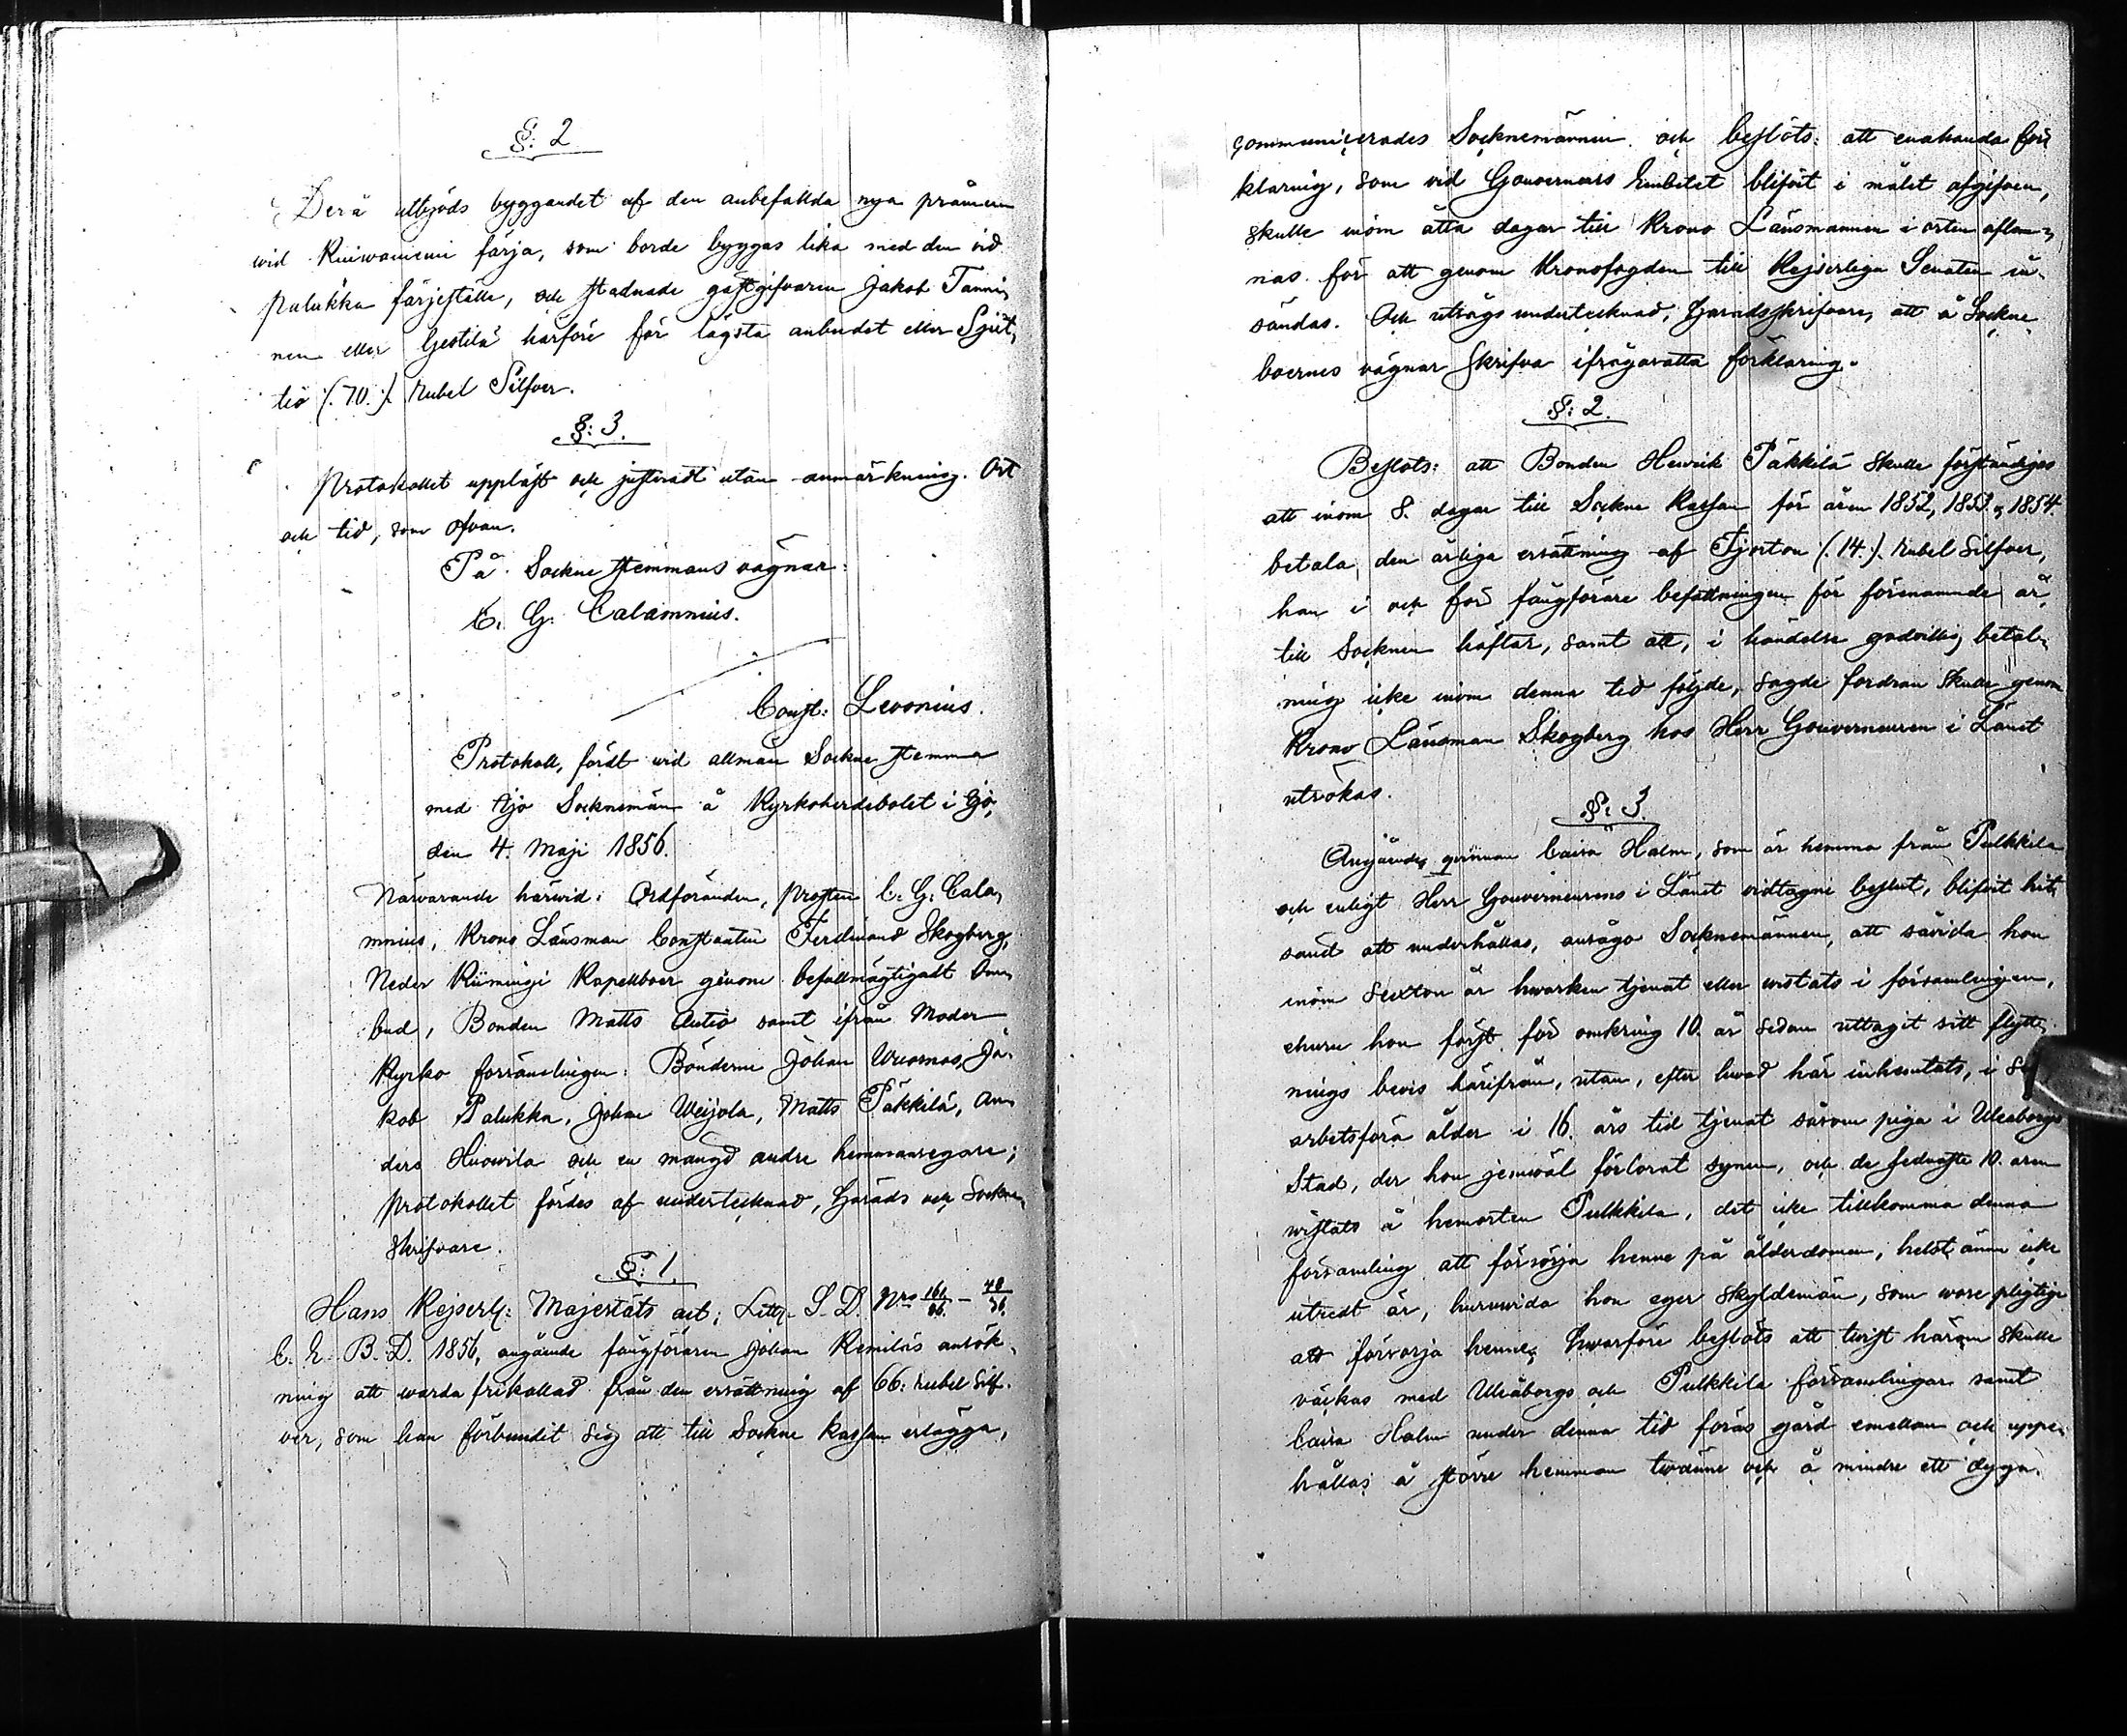 §: 2
Derå utbjöds byggandet af den anbefallda nya pråmen
wid Kuiwaniemi färja, som borde byggas lika med den vid
Palukka färjeställe, och stadnade gästgifvaren Jakob Tanni,
nen eller Gestilä härföre för lägsta anbudet eller Sjut,
tio (.70.). Rubel Silfver.
§: 3.
Protokollet uppläst och justeradt utan anmärkning. Ort
och tid, som ofvan.
På Sockne stemmans vägnar:
C. G. Calamnius.
Const: Levonius.
Protokoll, fördt vid allmän Sockne stemma
med Ijo Socknemän å Kyrkoherdebolet i Ijo,
den 4. Maji 1856.
Närvarande härvid: Ordföranden, Prosten C. G. Cala,
mnius, Krono Länsman Constantin Ferdinand Skogberg,
Neder Kiiminge Kapellboer genom befullmägtigadt Om,
bud, Bonden Matts Autio samt ifrån Moder
Kyrko församlingen: Bönderne Johan Wuornos, Ja,
kob Palukka, Johan Weijola, Matts Päkkilä, An,
ders Huowila och en mängd andre hemmansegare;
Protokollet fördes af undertecknad, Härads och Sockne,
Skrifvare.
§: 1.
Hans Kejserl: Majestäts act; Litt. S. D. Nro 160/86. – 48/56.
C. E. B. D. 1856, angående fångföraren Johan Kemiläs ansök,
ning att warda frikallad från den ersättning af 66: rubel Silf.
ver, som han förbundit sig att till Sockne kassan erlägga,
communicerades Socknemännen och beslöts: att enahanda för,
klaring, som vid Gouverneurs Embetet blifvit i målet afgifven,
skulle inom åtta dagar till Krono Länsmannen i orten aflem,
nas för att genom Kronofogden till Kejserliga Senaten in,
sändas. Och utsågs undertecknad, Häradsskrifvare, att å Sockne
boernes vägnar skrifva ifrågasatta förklaring.
§: 2.
Beslöts: att Bonden Henrik Päkkilä skulle förständigas
att inom 8. dagar till Sockne Kassan för åren 1852, 1853. & 1854.
betala, den årliga ersättning af Fjorton (.14.). Rubel Silfver,
han i och för fångförare befattningen för förenämnde år
till Socknen häftar, samt att, i händelse godvillig betal,
ning icke inom denna tid följde, sagde fordran skulle genom
Krono Länsman Skogberg hos Herr Gouverneuren i Länet
utsökas.
§: 3.
Angående qvinnan Caisa Halm, som är hemma från Pulkkila
och enligt Herr Gouverneurens i Länet vidtagne beslut, blifvit hit,
sänd att underhållas, ansågo Socknemännen, att såvida hon
inom sexton år hwarken tjenat eller wistats i församlingen,
ehuru hon först för omkring 10. år sedan uttagit sitt flytt,
nings bevis härifrån, utan, efter hwad här inhemtats, i
arbetsföra ålder i 16. års tid tjenat såsom piga i Uleåborgs
Stad, der hon jemwäl förlorat synen, och de sednaste 10. åren
wistats å hemorten Pulkkila, det icke tillkomma denna
församling att försörja henne på ålderdomen, helst ännu icke
utredt är, huruwida hon eger skyldemän, som wore pligtige
att försörja henne, hwarföre beslöts att twist härom skulle
väckas med Uleåborgs och Pulkkila församlingar samt
Caisa Halm under denna tid föras gård emellan och uppe,
hållas å större hemman twänne och å mindre ett dygn.